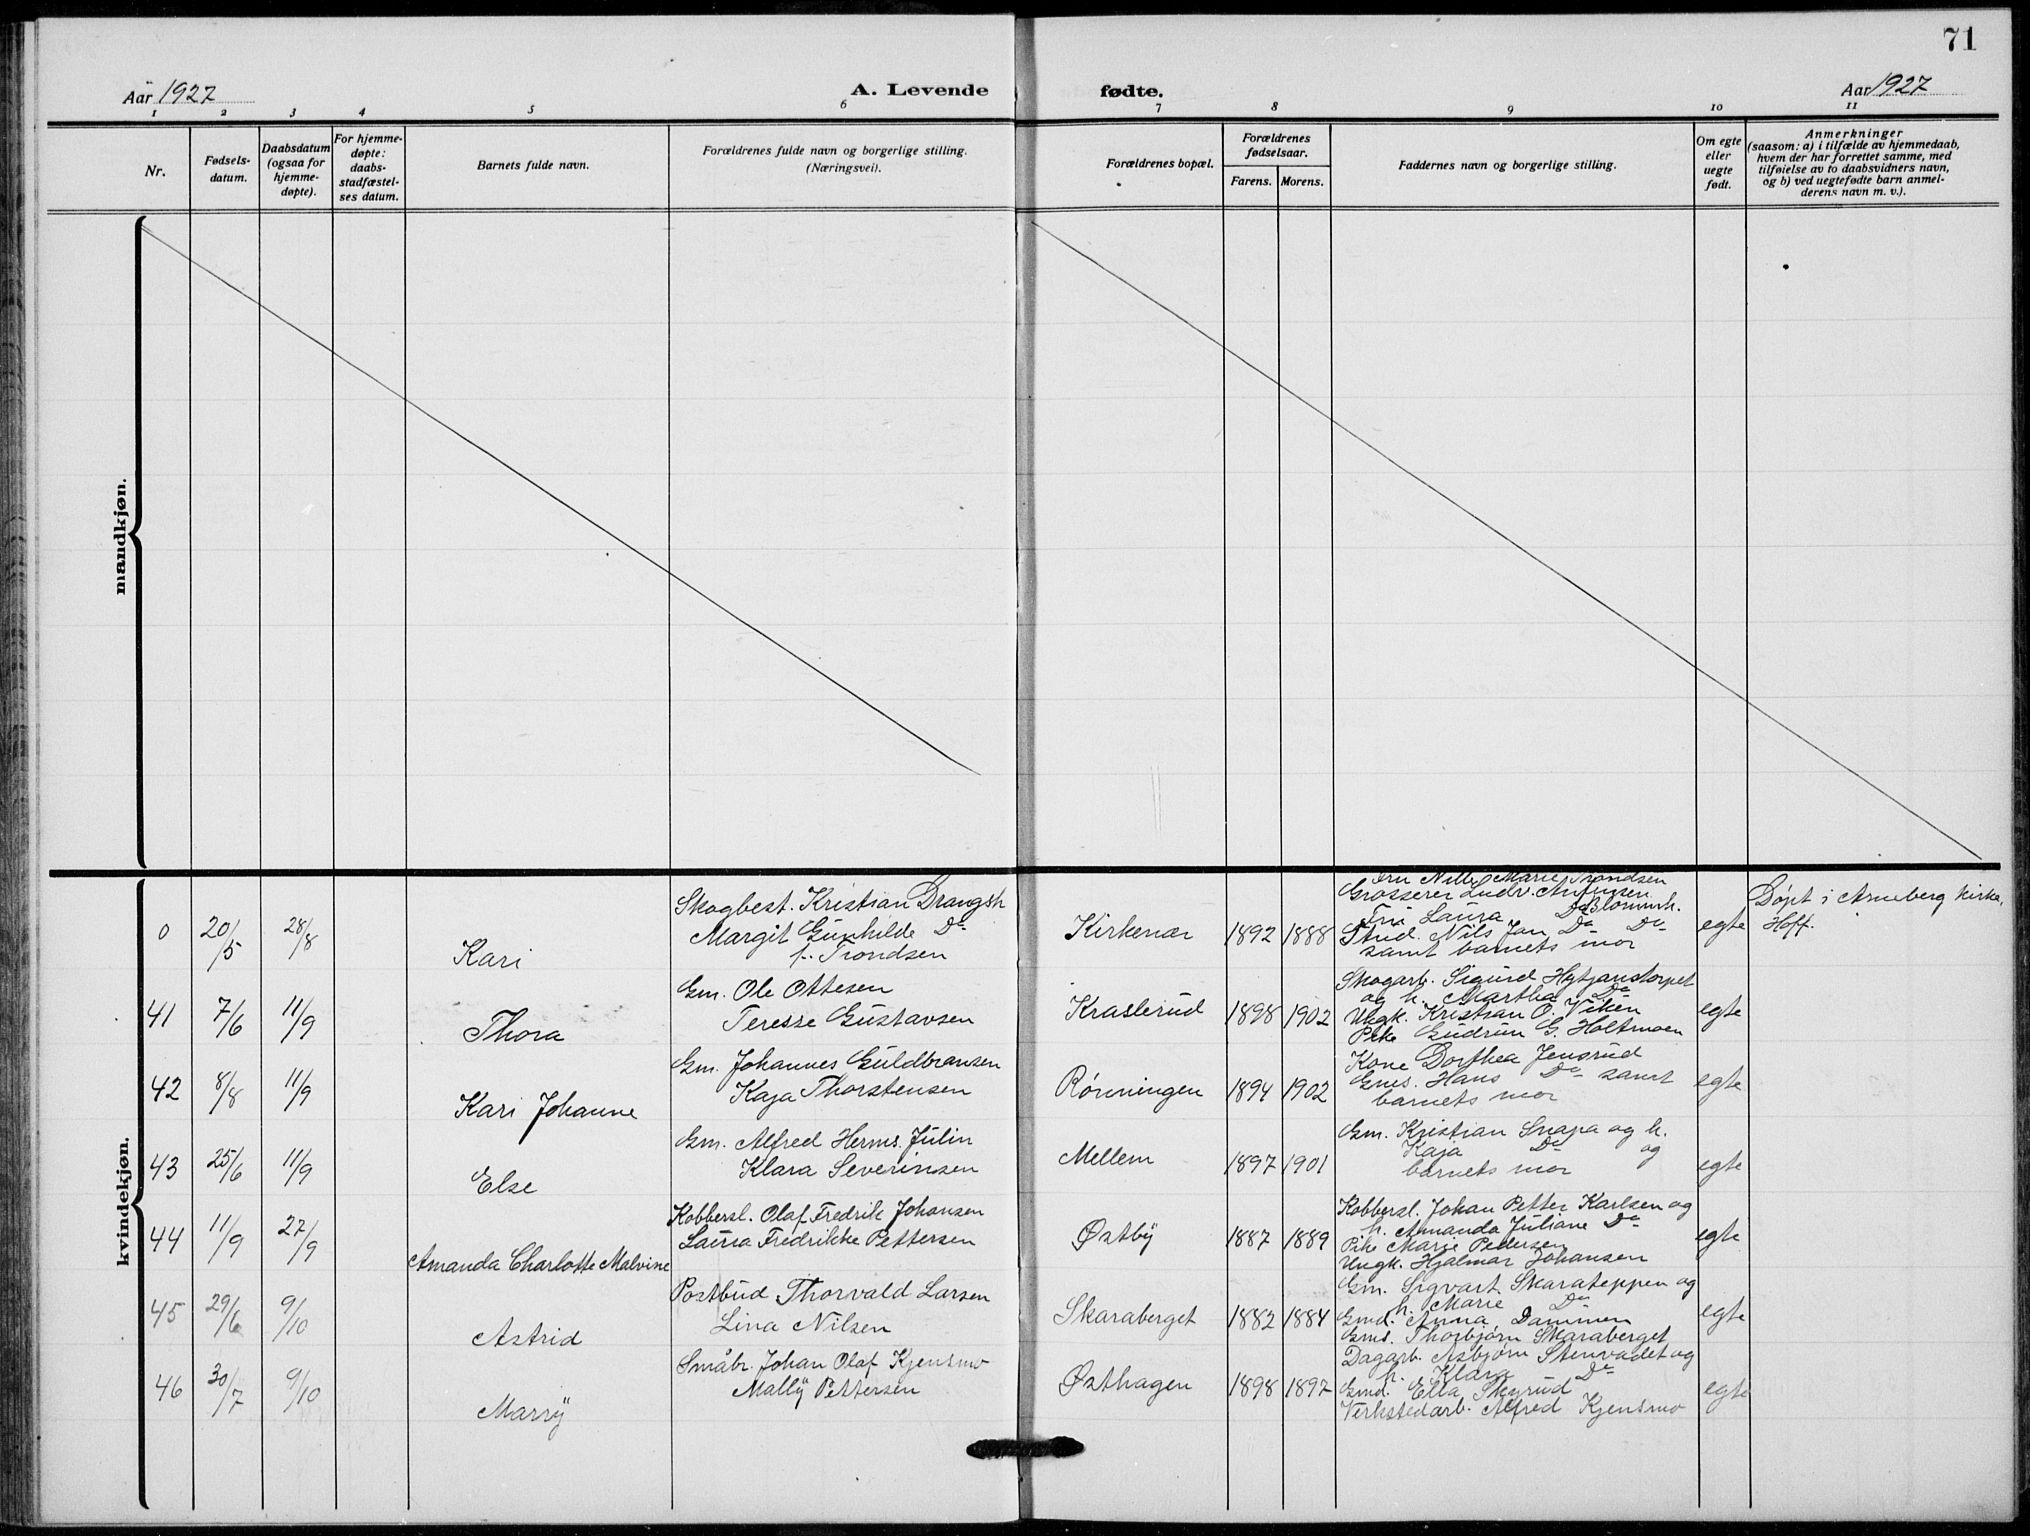 71
Aar 1927 A. Levende fødte. Aar 1927
1 2 3 4 5 6 7 8 9 10 11
Nr.
Fødsels-
datum.
Daabsdatum
(ogsaa for
hjemme-
døpte).
For hjemme-
døpte:
daabs-
stadfæstel-
ses datum.
Barnets fulde navn.
Forældrenes fulde navn og borgerlige stilling.
(Næringsvei).
Forældrenes bopæl.
Forældrenes
fødselsaar.
Farens. Morens.
Faddernes navn og borgerlige stilling.
Om egte
eller
uegte
født.
Anmerkninger
(saasom: a) i tilfælde av hjemmedaab,
hvem der har forrettet samme, med
tilføielse av to daabsvidners navn,
og b) ved uegtefødte barn anmel-
derens navn m. v.).
mandkjøn.
kvindekjøn.
0 20/5 28/8 Kari
Skogbest. Kristian Drangsh
Margit Gunhilde Do
f. Trondsen
Kirkenær 1892 1888
Fru Marie Trondsen
Grosserer Ludv.
Fru Laura Do
Stud. Nils Jan Do Do
samt barnets mor
egte
Døpt i Arneberg kirke,
Hoff.
41 7/6 11/9 Thora
Gm. Ole Ottesen
Teresse Gustavsen
Kraslerud 1898 1902
Skogarb. Sigurd
og h. Martha Do
Ungk. Kristian O. Viken
Pike Gudrun G. Holtmoen
egte
42 8/8 11/9 Kari Johanne
Gm. Johannes Guldbransen
Kaja Thorstensen
Rønningen 1894 1902
Kone Dorthea Jensrud
Gms. Hans Do samt
barnets mor
egte
43 25/6 11/9 Else
Gm. Alfred Herms. Julin
Klara Severinsen
Mellem 1897 1901
Gm. Kristian Snapa og h.
Kaja Do og
barnets mor
egte
44 11/9 27/9 Amanda Charlotte Malvine
Kobbersl. Olaf Fredrik Johansen
Laura Fredrikke Pettersen
Østby 1887 1889
Kobbersl. Johan Petter Karlsen og
h. Amanda Juliane Do
Pike Marie Pedersen
Ungk. Hjalmar Johansen
egte
45 29/6 9/10 Astrid
Postbud Thorvald Larsen
Lina Nilsen
Skaraberget 1882 1884
Gm. Sigvart Skarateppen og
h. Marie Do
Gmd. Anna Dammen
Gms. Thorbjørn Skaraberget
egte
46 30/7 9/10 Marry
Småbr. Johan Olaf Kjensmo
Mally Pettersen
Østhagen 1898 1897
Dagarb. Asbjørn Stenvadet og
h. Klara Do
Gmd. Ella Skyrud
Verkstedarb. Alfred Kjensmo
egte